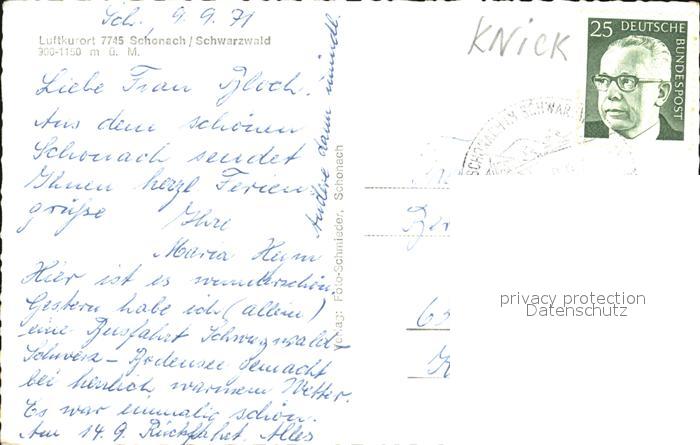 Sch, 9.9.71
Luftkurort 7745 Schonach/Schwarzwald
900-1150 m ü. M.
Liebe Frau Bloch!
Aus dem schönen
Schonach sendet
Ihnen herzl. Ferien
grüße Ihre
Maria Heym
Hier ist es wunderschön.
Gestern habe ich (allein)
eine Busfahrt Schwarzwald-
Schweiz - Bodensee gemacht
bei herrlich warmem Wetter.
Es war einmalig schön.
Am 14.9. Rückfahrt. Alles
Andere dann mündl.
Verlag: Foto-Schmieder, Schonach
KNICK
25 DEUTSCHE
BUNDESPOST
SCHONACH IM SCHWARZW
privacy protection
Datenschutz